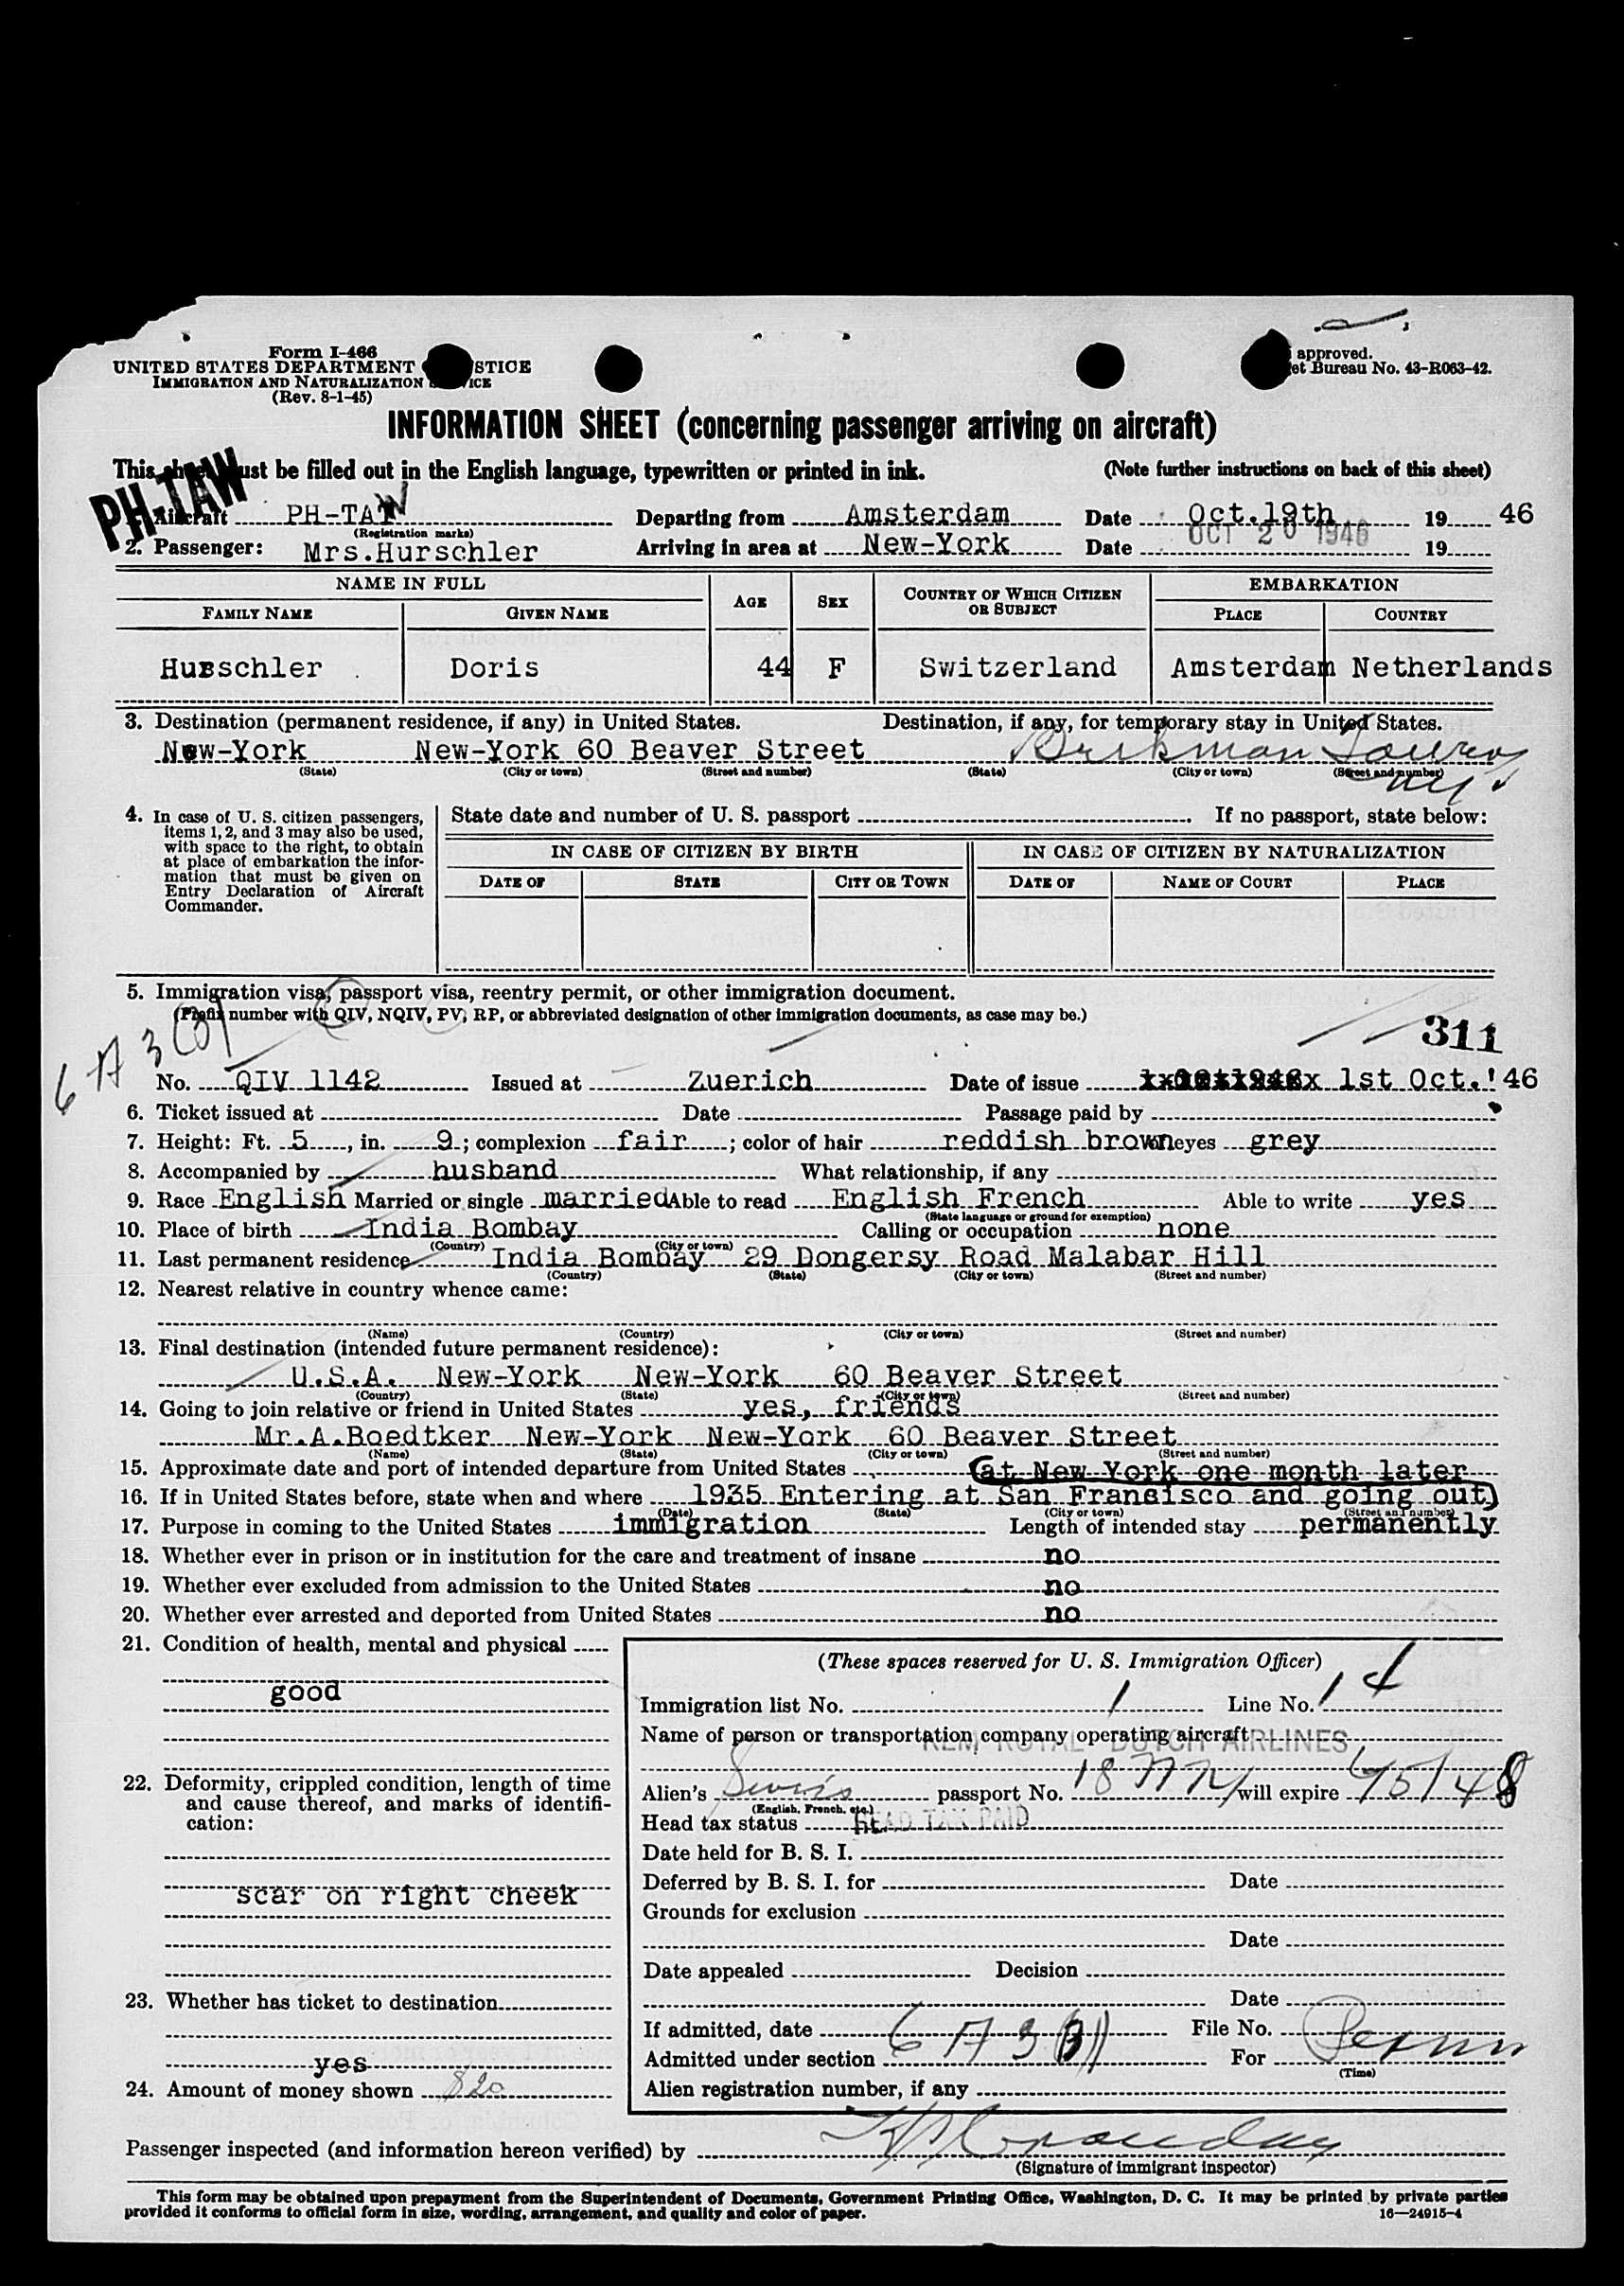 Form I-466
UNITED STATES DEPARTMENT STICE
IMMIGRATION AND NATURALIZATION ICE
(Rev. 8-1-45)
approved.
et Bureau No. 43-R063-42.
INFORMATION SHEET (concerning passenger arriving on aircraft)
This must be filled out in the English language, typewritten or printed in ink. (Note further instructions on back of this sheet)
PH-TAW
1. Aircraft PH-TAW Departing from Amsterdam Date Oct.19th 19 46
(Registration marks)
2. Passenger: Mrs.Hurschler Arriving in area at New-York Date OCT 20 1946 19
NAME IN FULL AGE SEX COUNTRY OF WHICH CITIZEN OR SUBJECT EMBARKATION
FAMILY NAME GIVEN NAME PLACE COUNTRY
Hurschler Doris 44 F Switzerland Amsterdam Netherlands
3. Destination (permanent residence, if any) in United States. Destination, if any, for temporary stay in United States.
New-York New-York 60 Beaver Street
(State) (City or town) (Street and number) (State) (City or town) (Street and number)
4. In case of U. S. citizen passengers, items 1, 2, and 3 may also be used, with space to the right, to obtain at place of embarkation the information that must be given on Entry Declaration of Aircraft Commander.
State date and number of U. S. passport . If no passport, state below:
IN CASE OF CITIZEN BY BIRTH IN CASE OF CITIZEN BY NATURALIZATION
DATE OF STATE CITY OR TOWN DATE OF NAME OF COURT PLACE
5. Immigration visa, passport visa, reentry permit, or other immigration document.
(Prefix number with QIV, NQIV, PV, RP, or abbreviated designation of other immigration documents, as case may be.)
311
6 A 3 (3)
No. QIV 1142 Issued at Zuerich Date of issue 1st Oct.'46
6. Ticket issued at Date Passage paid by
7. Height: Ft. 5, in. 9; complexion fair; color of hair reddish brown eyes grey
8. Accompanied by husband What relationship, if any
9. Race English Married or single married Able to read English French Able to write yes
(State language or ground for exemption)
10. Place of birth India Bombay Calling or occupation none
(Country) (City or town)
11. Last permanent residence India Bombay 29 Dongersy Road Malabar Hill
(Country) (State) (City or town) (Street and number)
12. Nearest relative in country whence came:
(Name) (Country) (City or town) (Street and number)
13. Final destination (intended future permanent residence):
U.S.A. New-York New-York 60 Beaver Street
(Country) (State) (City or town) (Street and number)
14. Going to join relative or friend in United States yes, friends
Mr.A.Boedtker New-York New-York 60 Beaver Street
(Name) (State) (City or town) (Street and number)
15. Approximate date and port of intended departure from United States (at New York one month later
16. If in United States before, state when and where 1935 Entering at San Francisco and going out)
(Date) (State) (City or town) (Street and number)
17. Purpose in coming to the United States immigration Length of intended stay permanently
18. Whether ever in prison or in institution for the care and treatment of insane no
19. Whether ever excluded from admission to the United States no
20. Whether ever arrested and deported from United States no
21. Condition of health, mental and physical
good
22. Deformity, crippled condition, length of time and cause thereof, and marks of identification:
scar on right cheek
23. Whether has ticket to destination
yes
24. Amount of money shown $20
(These spaces reserved for U. S. Immigration Officer)
Immigration list No. 1 Line No. 14
Name of person or transportation company operating aircraft
KLM ROYAL DUTCH AIRLINES
Alien's Swiss passport No. will expire
(English, French, etc.)
Head tax status HEAD TAX PAID
Date held for B. S. I.
Deferred by B. S. I. for Date
Grounds for exclusion
Date
Date appealed Decision
Date
If admitted, date File No.
Admitted under section 6 A 3 (3) For Perm
(Time)
Alien registration number, if any
Passenger inspected (and information hereon verified) by
(Signature of immigrant inspector)
This form may be obtained upon prepayment from the Superintendent of Documents, Government Printing Office, Washington, D. C. It may be printed by private parties
provided it conforms to official form in size, wording, arrangement, and quality and color of paper. 16—24915-4